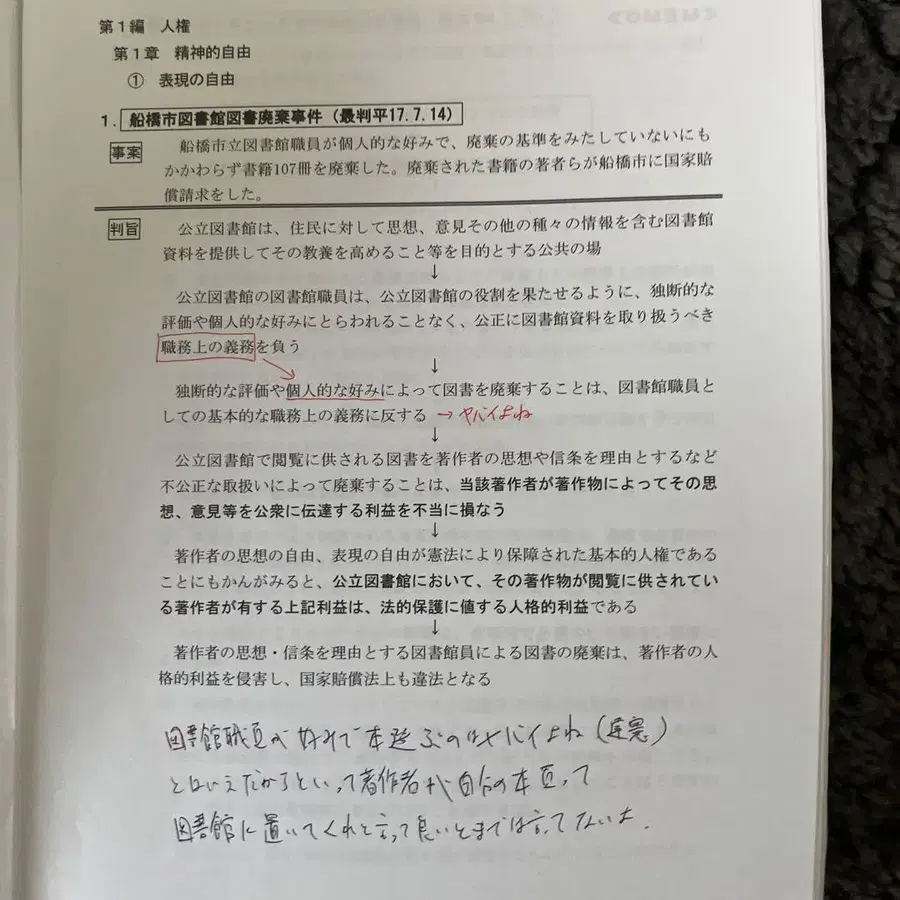 第1編　人権
第1章　精神的自由
①　表現の自由
1. 船橋市図書館図書廃棄事件（最判平17.7.14）
事案　船橋市立図書館職員が個人的な好みで、廃棄の基準をみたしていないにも
かかわらず書籍107冊を廃棄した。廃棄された書籍の著者らが船橋市に国家賠
償請求をした。
判旨　公立図書館は、住民に対して思想、意見その他の種々の情報を含む図書館
資料を提供してその教養を高めること等を目的とする公共の場
↓
公立図書館の図書館職員は、公立図書館の役割を果たせるように、独断的な
評価や個人的な好みにとらわれることなく、公正に図書館資料を取り扱うべき
職務上の義務を負う
↓
独断的な評価や個人的な好みによって図書を廃棄することは、図書館職員と
しての基本的な職務上の義務に反する →ヤバイよね
↓
公立図書館で閲覧に供される図書を著作者の思想や信条を理由とするなど
不公正な取扱いによって廃棄することは、当該著作者が著作物によってその思
想、意見等を公衆に伝達する利益を不当に損なう
↓
著作者の思想の自由、表現の自由が憲法により保障された基本的人権である
ことにもかんがみると、公立図書館において、その著作物が閲覧に供されてい
る著作者が有する上記利益は、法的保護に値する人格的利益である
↓
著作者の思想・信条を理由とする図書館員による図書の廃棄は、著作者の人
格的利益を侵害し、国家賠償法上も違法となる
図書館職員が好みで本選ぶのはヤバイよね（違憲）
とはいえだからといって著作者が自分の本 って
図書館に置いてくれと言って良いとまでは言ってないよ.